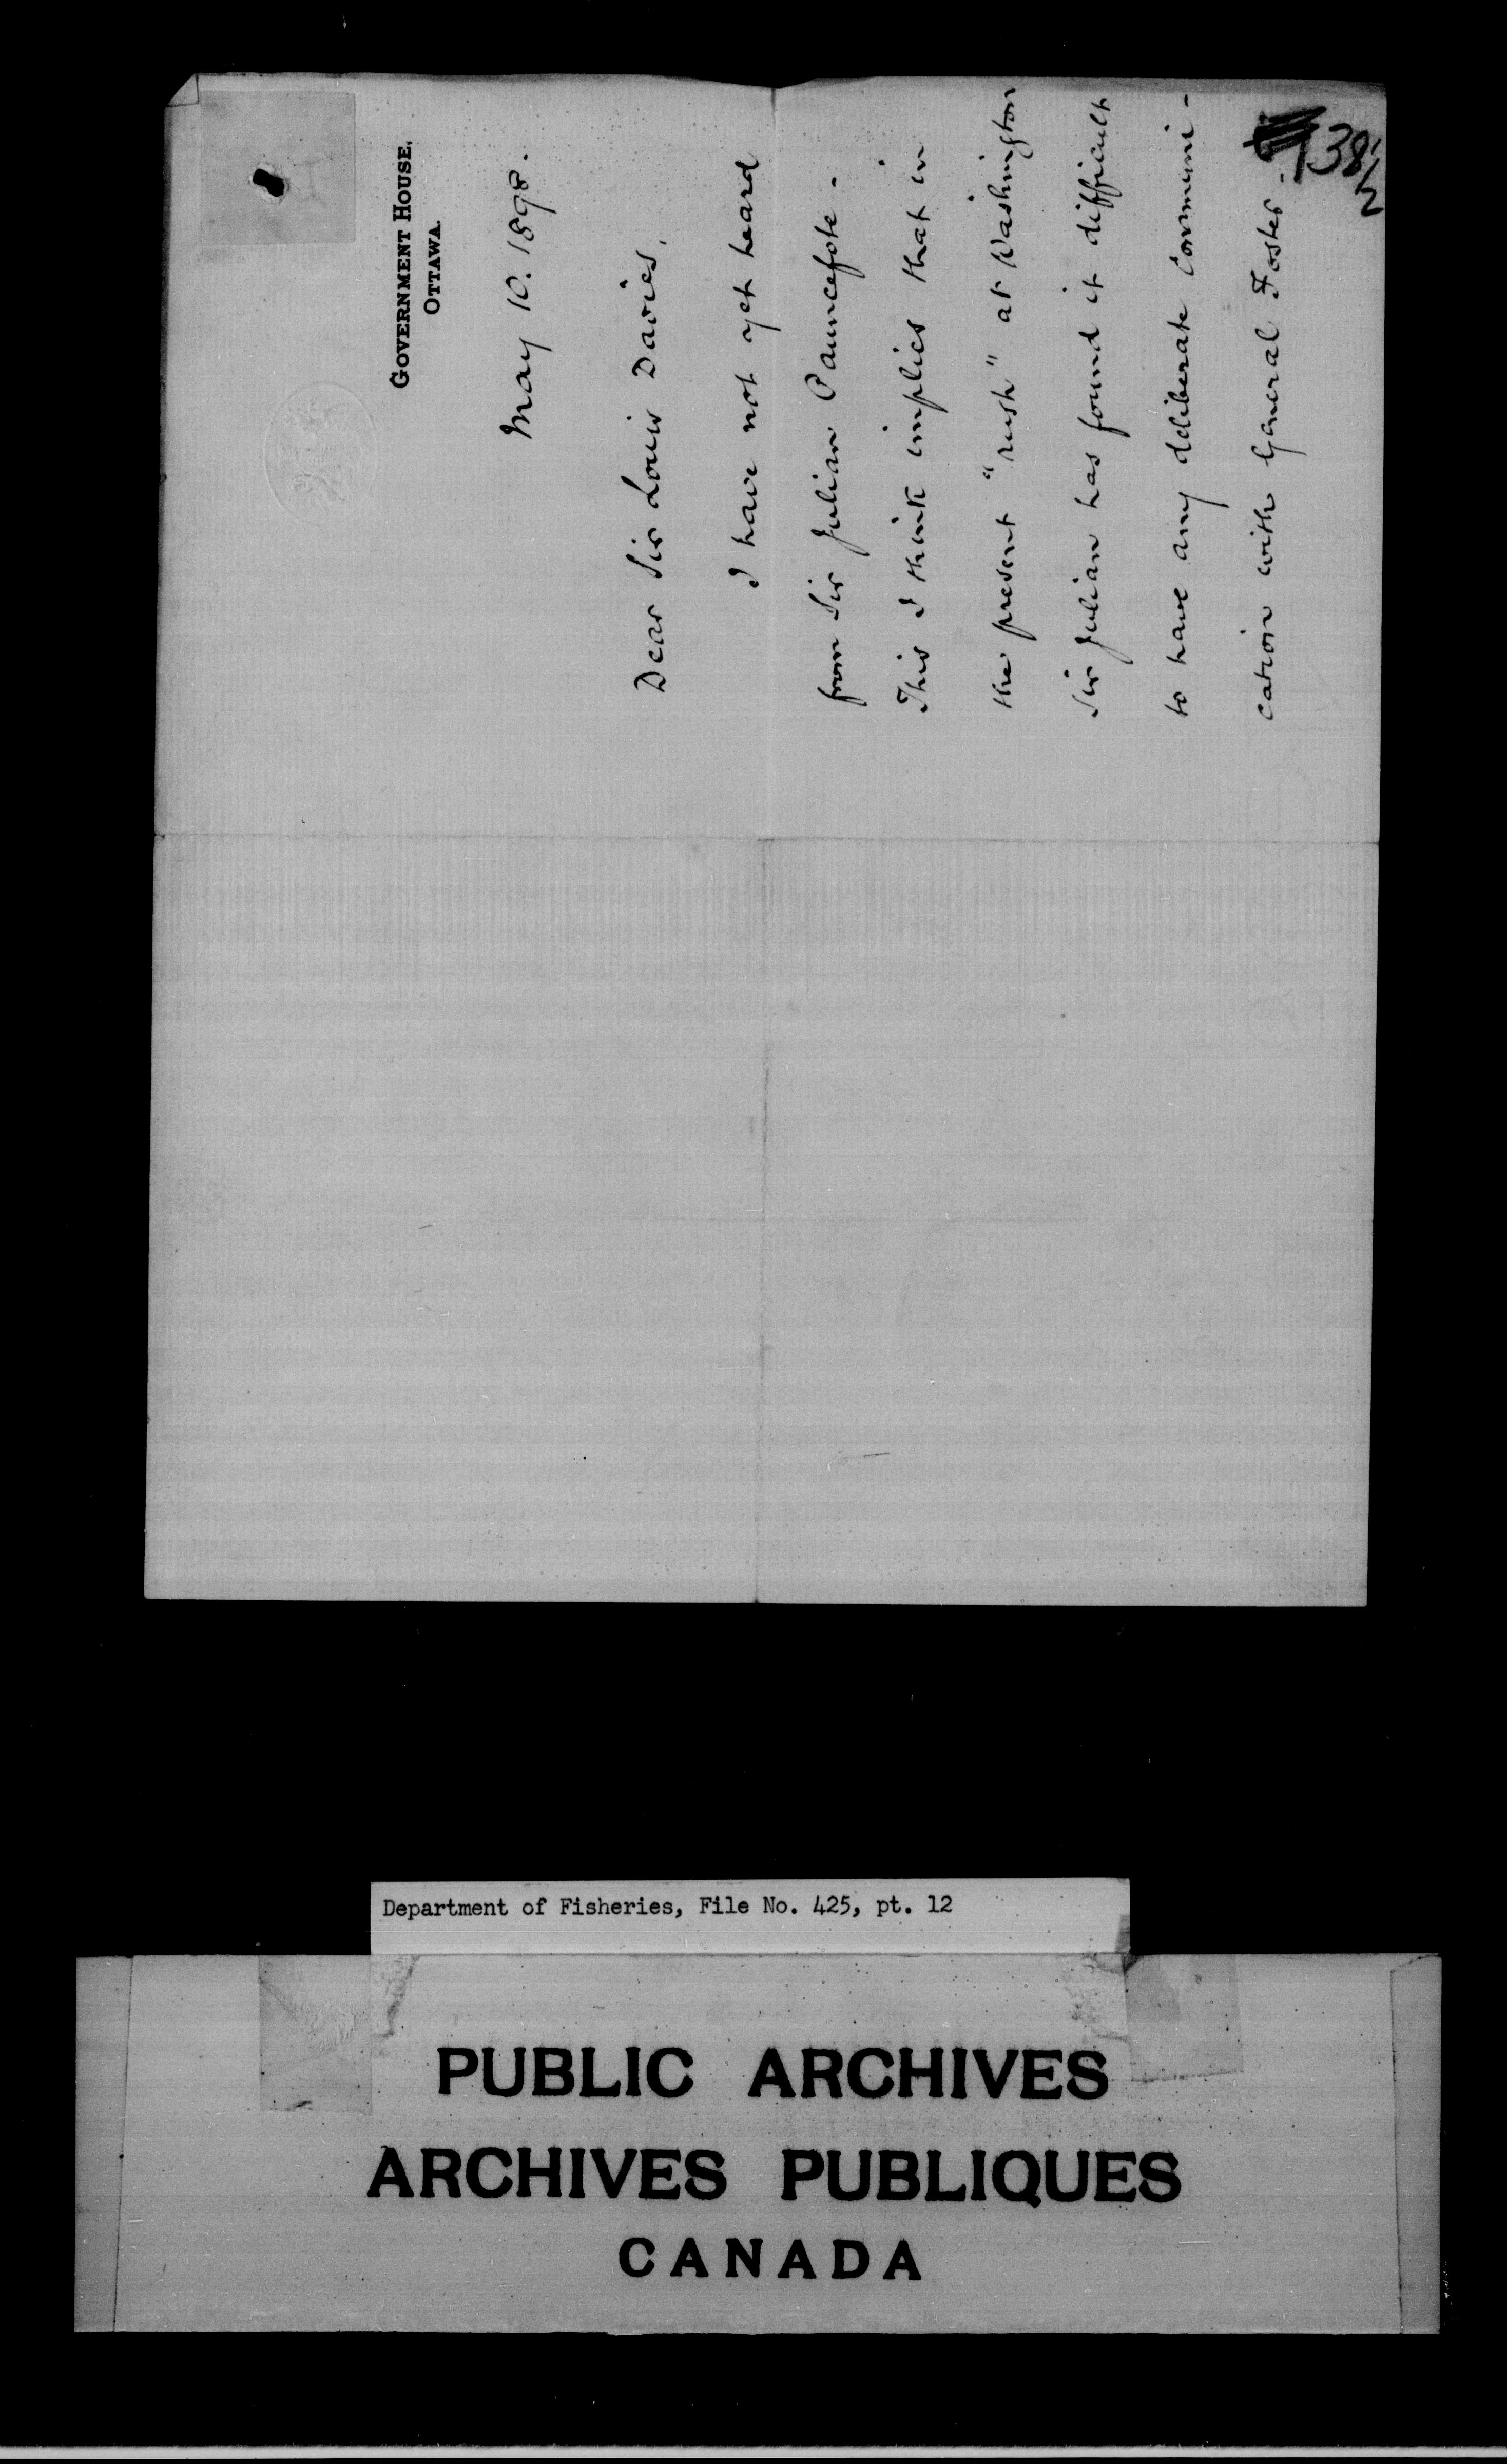 GOVERNMENT HOUSE,
OTTAWA.
May 10. 1898.
Dear Sir Louis Davies,
I have not yet heard
from Sir Julian Pauncefote -
This I think implies that in
the present "rush" at Washington
Sir Julian has found it difficult
to have any deliberate communi-
cation with General Foster -
138 1/2
Department of Fisheries, File No. 425, pt. 12
PUBLIC ARCHIVES
ARCHIVES PUBLIQUES
CANADA